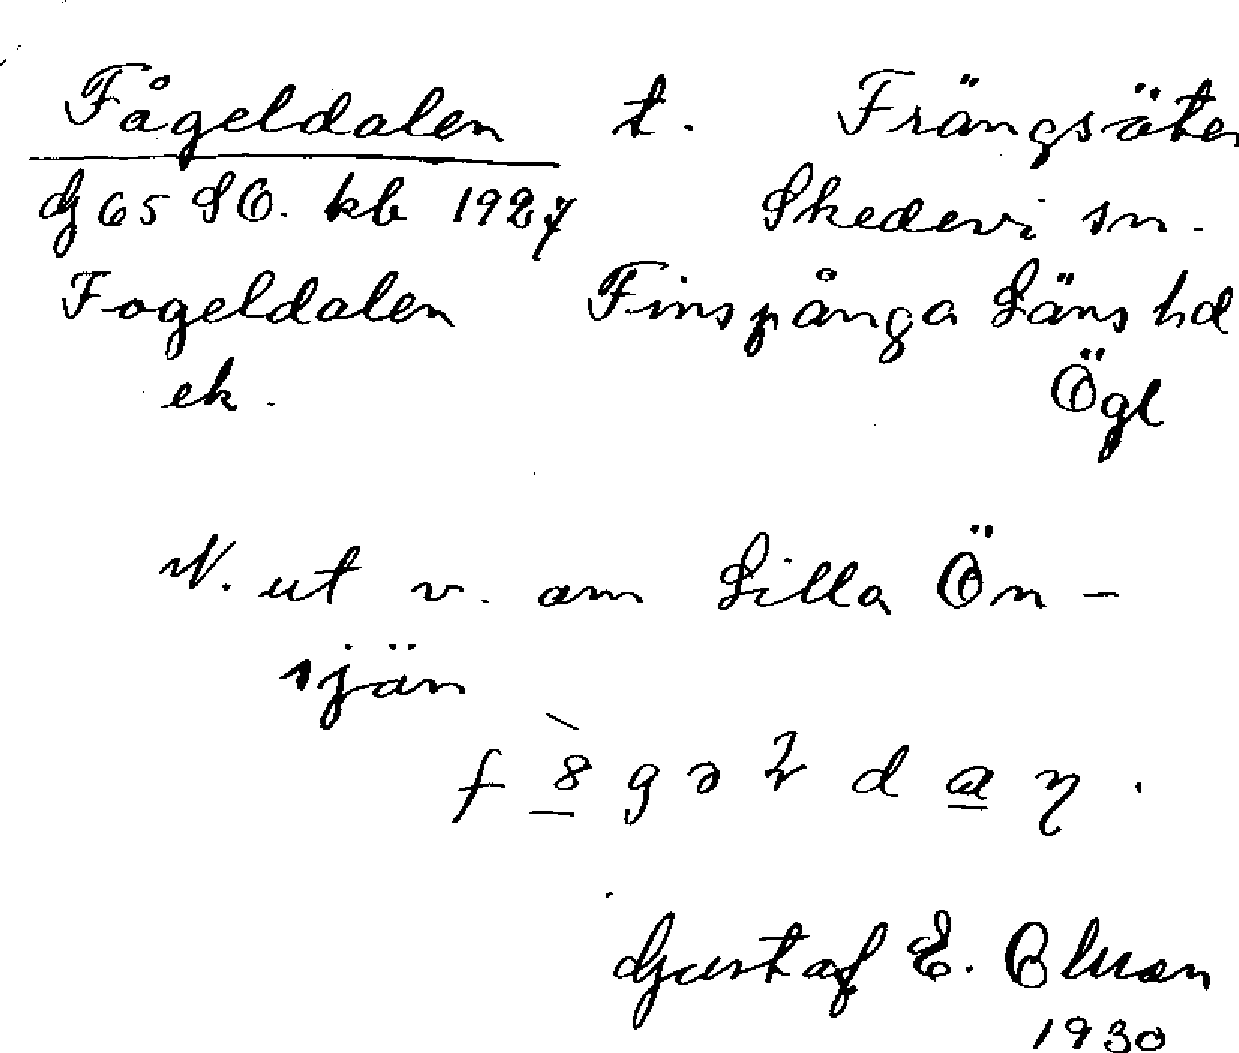 Fågeldalen t. Frängsäter
G 65 SO. kb 1927 Skedevi sn.
Fogeldalen Finspånga Läns hd
ek. Ögl
N. ut v. om Lilla Ön-
sjön
Gustaf E. Olson
1930